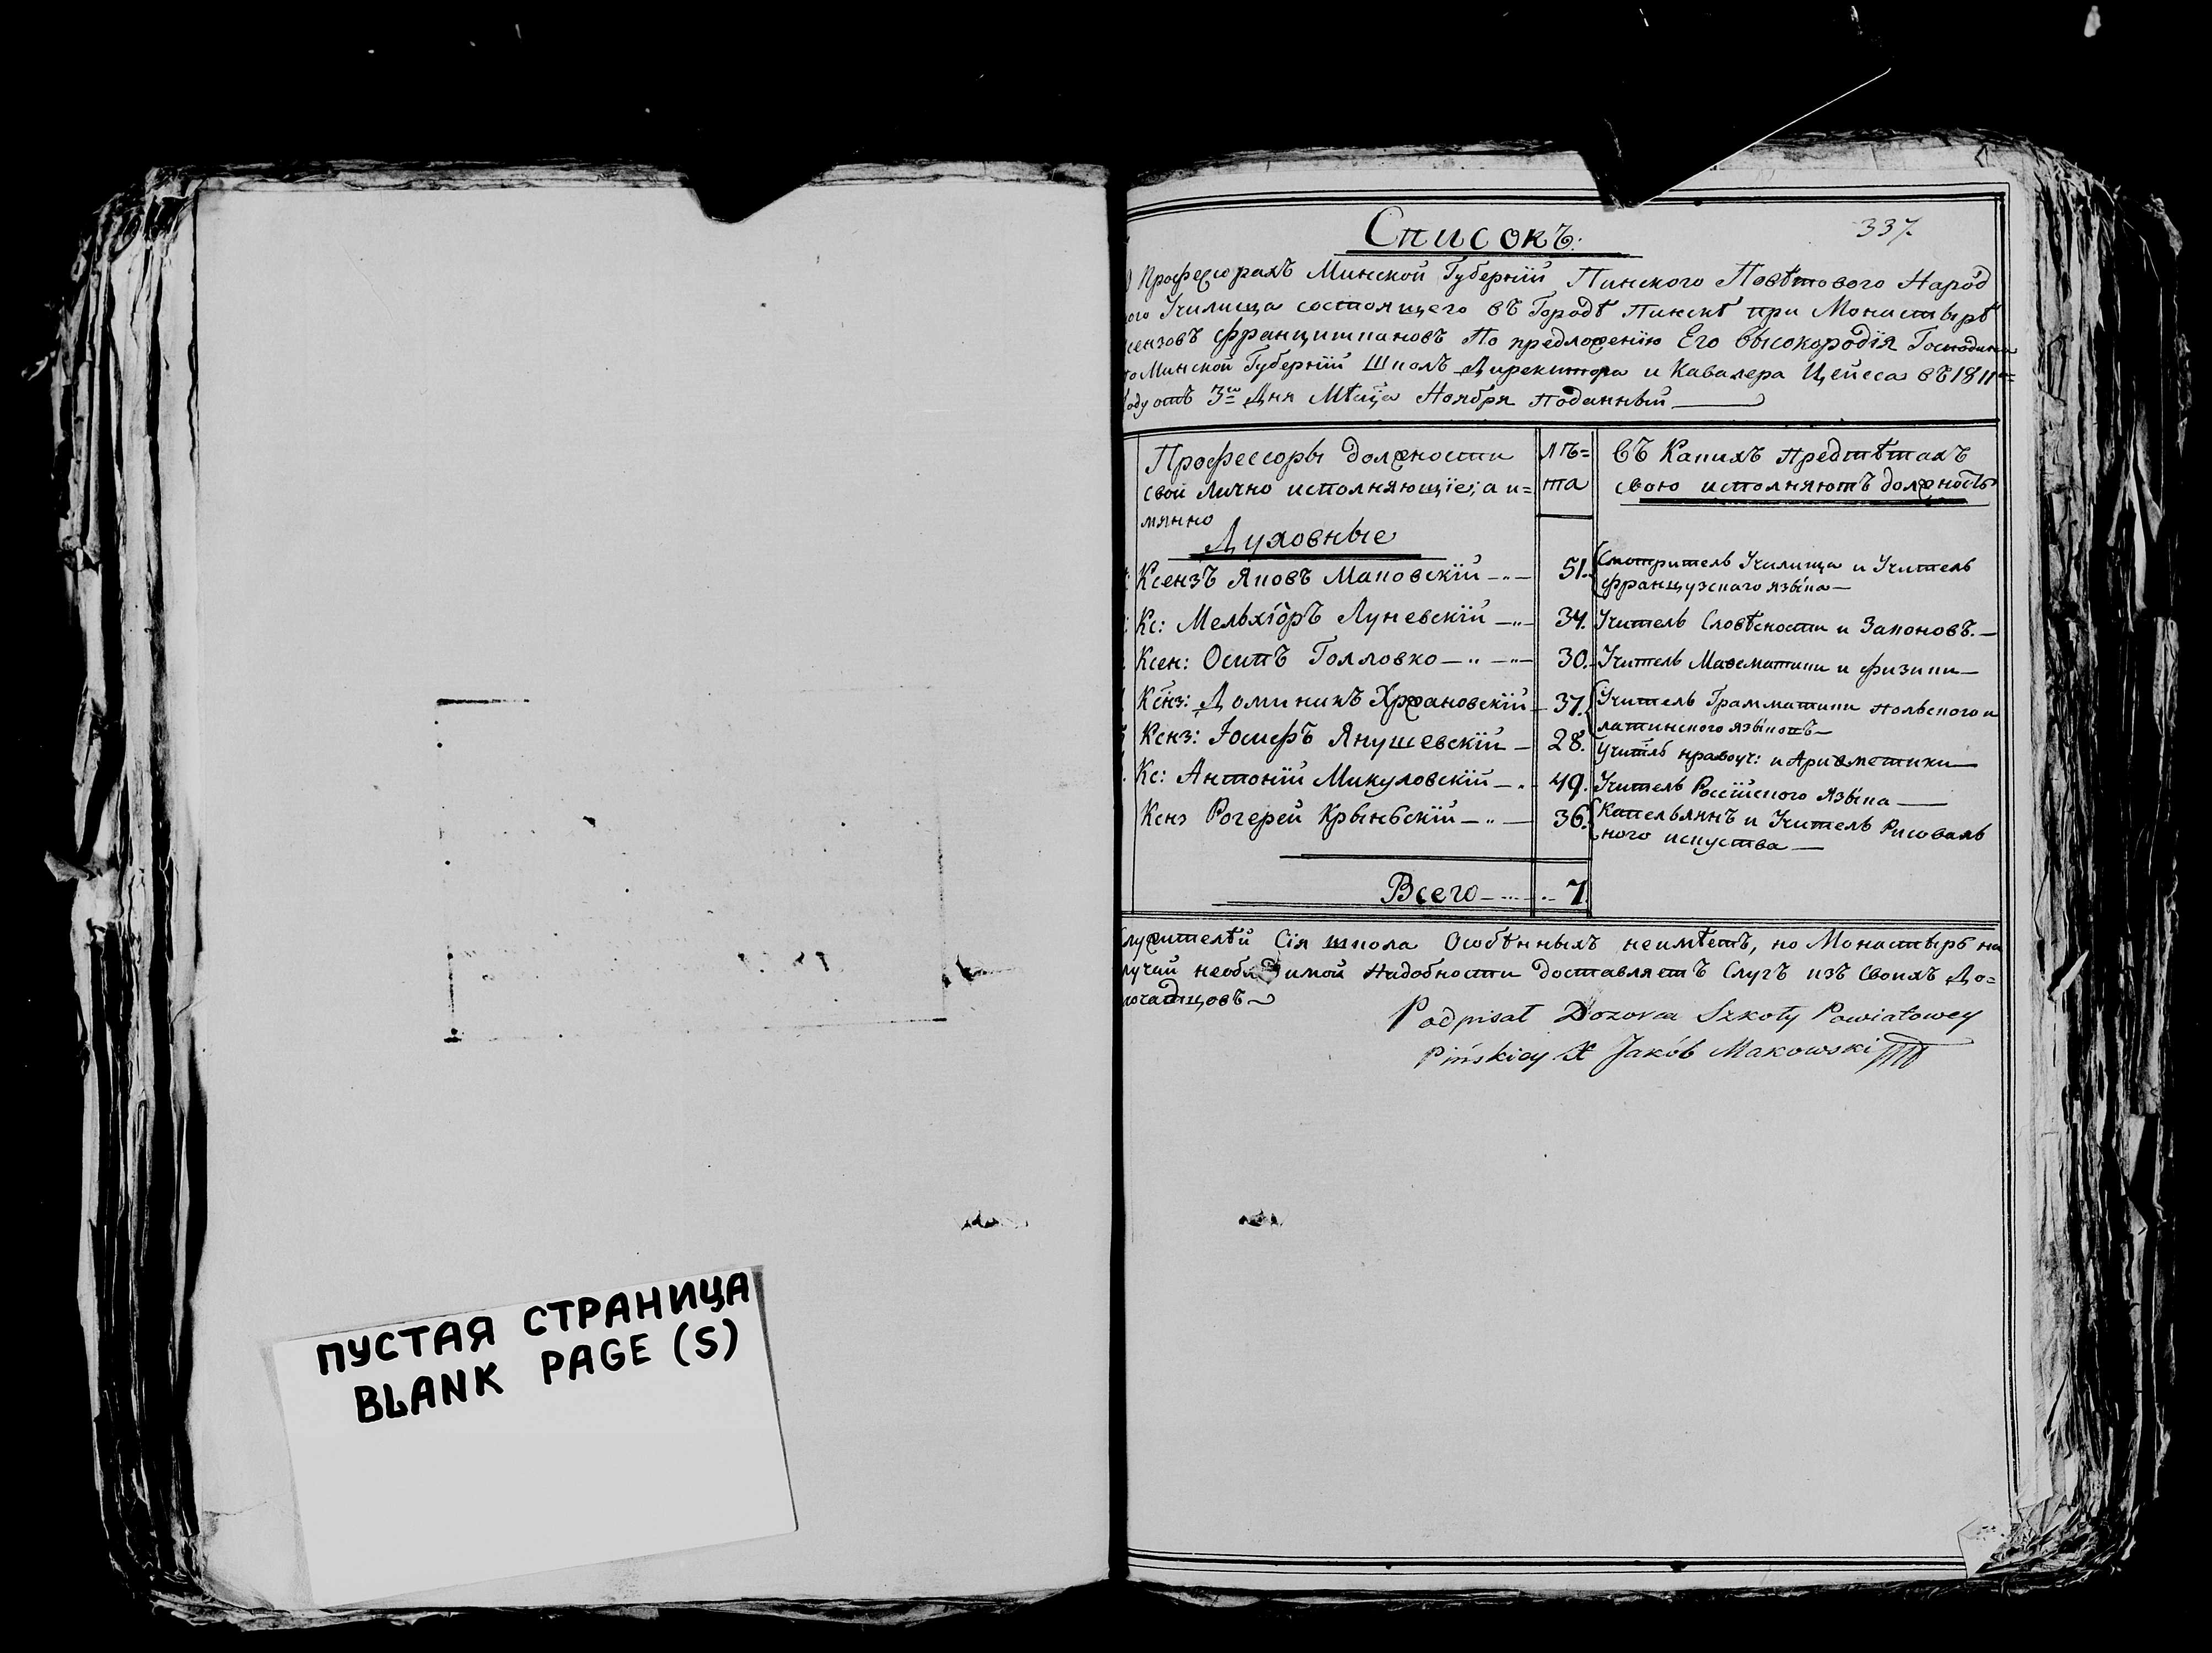 ПУСТАЯ СТРАНИЦА
BLANK PAGE (S)
337.
Списокъ:
Професорахъ Минской Губерніи Пинского Повѣтового Народ
ого Училища состоящего въ Городѣ Пинскѣ при Монастырѣ
сензовъ францишкановъ По предложенію Его высокородія Господина
Минской Губерніи Школъ Директора и Кавалера Цейса въ 1811
оду отъ 3го Дня Мѣсца Ноября поданный
Профессоры должности
свои лично исполняющіе; а и=
мянно
лѣ=
та
въ Какихъ предмѣтахъ
свою исполняютъ должность
Духовные
Ксензъ Яковъ Маковскій 51. Смотритель Училища и Учитель
французскаго языка
Кс: Мельхіоръ Луневскій 34. Учитель Словѣсности и Законовъ.
Ксен: ОсипъГолловко 30. Учитель Маѳематики и физики
Ксенз: Доминикъ Хржановскій 37. Учитель Грамматики польского и
латинского языковъ
Ксенз: Іосифъ Янушевскій 28. Учитель нравоуч: и Ариѳметики
Кс: Антоній Микуловскій 49. Учитель Россійского Языка
Ксенз Рогерей Крыньскій 36. Капельянъ и Учитель Рисоваль
ного искуства
Всего 7.
лужителѣй Сія школа Особѣнныхъ неимѣетъ, но Монастырь на
лучай необходимой надобности доставляетъ Слугъ изъ своихъ До=
мочадцовъ
Podpisał Dozorca Szkoły Powiatowey
Pińskiey X Jakób Makowski